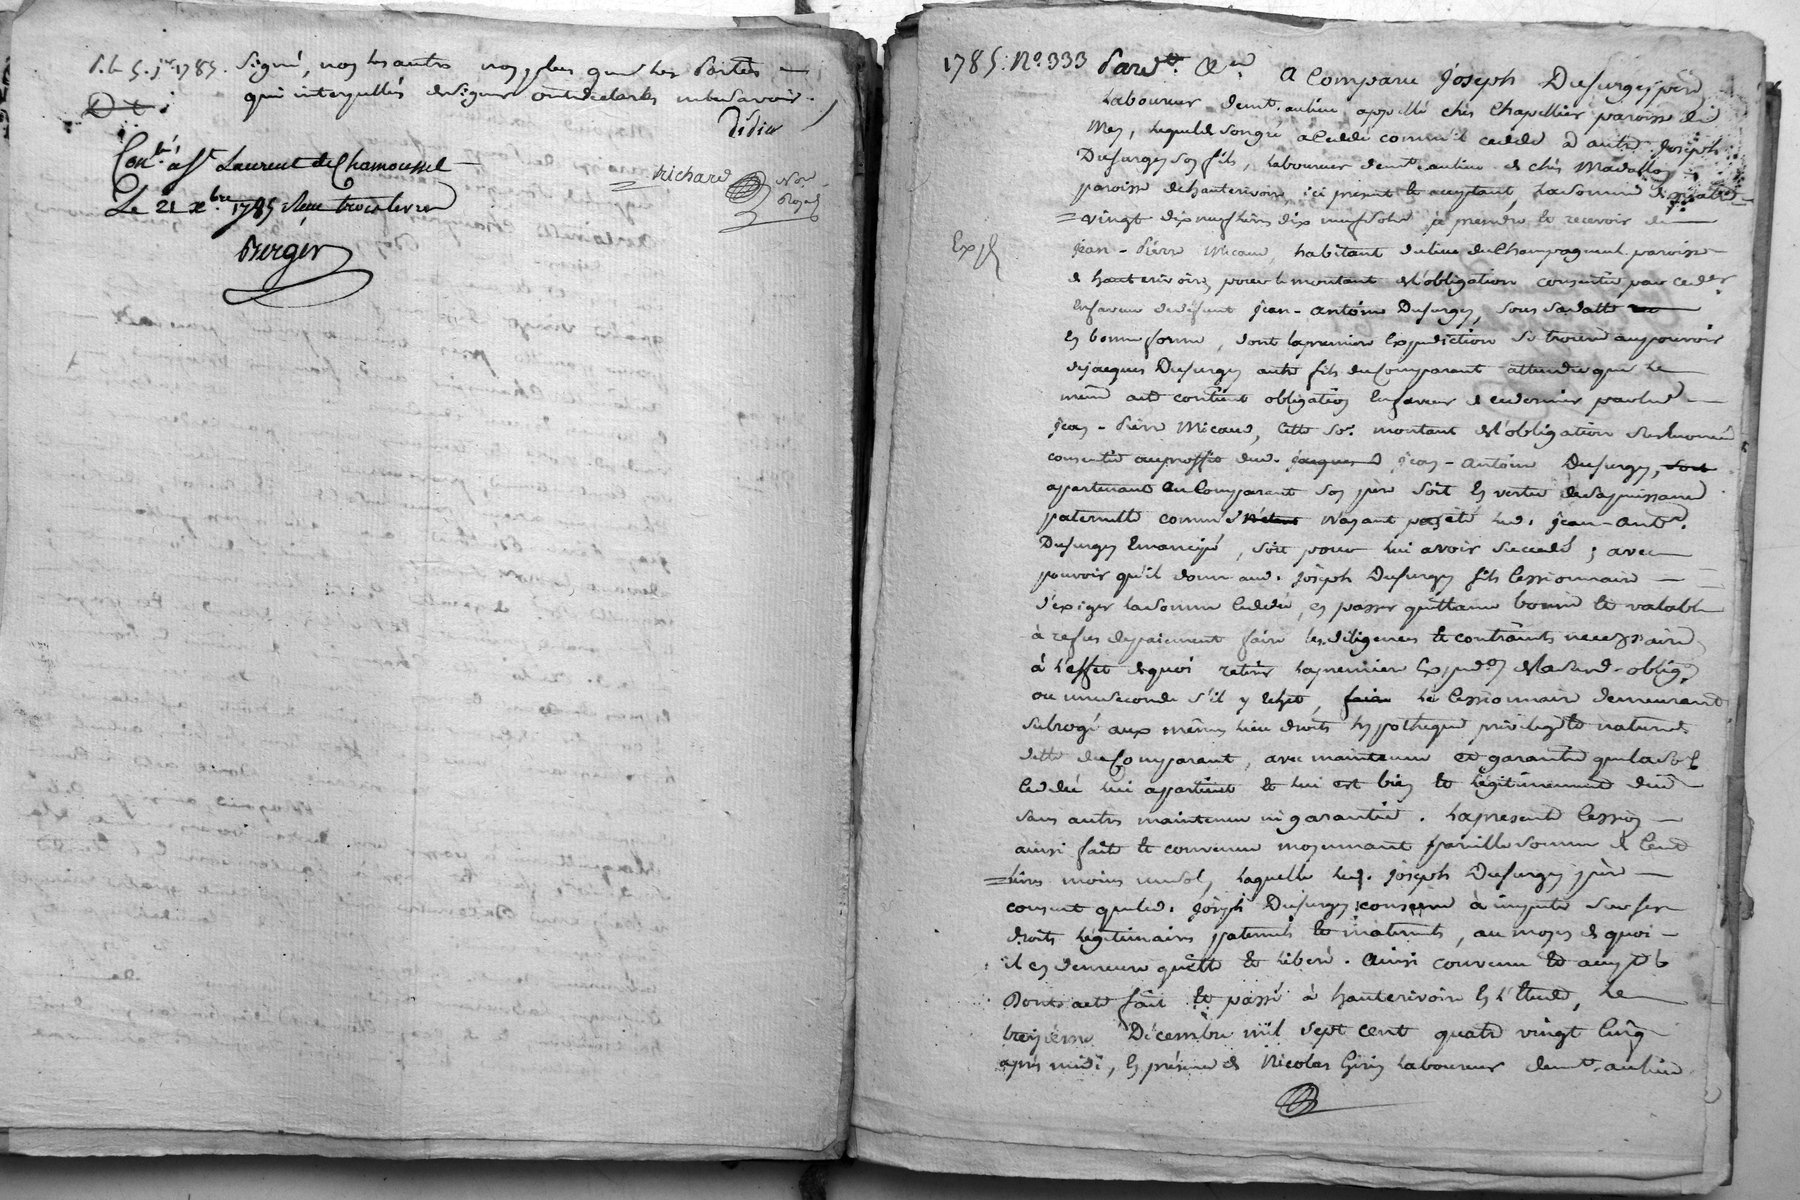 signé, non les autres non plus que les parties
qui interpellés de signer ont déclarés ne le savoir.
Didier
Richard Nore Royal
Conlé à St Laurent de Chamousset
Le 21 xbre 1785 Reçu trois livres
Berger
1785. No. 333 Pardt.
A Comparu Joseph Dusurgey père
laboureur demt. au lieu appellé chés Chapellier paroisse de
Mey, lequel de son gré a cédé comme il cedde à autre Joseph
Dusurgey son fils, laboureur demt. au lieu de chés Madallon
paroisse de hauterivoire ici present et acceptant, la somme de quatre
vingt dix neuf livres dix neuf sols à prendre et recevoir de
Jean-Pierre Micaud, habitant du lieu de Champagneul paroisse
Exp
de hauterivoire, pour le montant de l'obligation consentie par ce der
en faveur de défunt jean-antoine Dusurgey, sous sa datte
en bonne forme, dont la premiere expediction se trouve au pouvoir
de jacques Dusurgey autre fils du Comparant attendu que le
même acte contient obligation en faveur de ce dernier par led.
jean-Pierre Micaud, cette so. montant de l'obligation
consentie au proffit dud. jacques jean-antoine Dusurgey, soit
apartenant au Comparant son père soit en vertu de sa puissance
paternelle comme n'étant n'ayant pas été led. jean-ant.
Dusurgey émancipé, soit pour lui avoir succedé; avec
pouvoir qu'il donne aud. Joseph Dusurgey fils cessionnaire
d'exiger la somme ceddée, en passer quittance bonne et valable
à refus de paiement faire les diligences et contraintes necessaires
à l'effet de quoi retirer la premiere expedon. de lad. oblig.
ou une seconde s'il y echet, faire le cessionnaire demeurant
subrogé aux mêmes lieu droits hypotheque privilege et nature de
dette du Comparant, avec maintenue et garantie que la so.
ceddée lui apartient et lui est bien et légitimement due
sans autre maintenue ni garantie. La presente cession
ainsi faite et convenue moyennant pareille somme de Cent
livres moins un sol, laquelle led. Joseph Dusurgey père
consent que led. Joseph Dusurgey conserve à imputer sur ses
droits légitimaires paternels et maternels, au moyen de quoi
il en demeure quitte et liberé. Ainsi convenu et accepté
Dont acte fait et passé à hauterivoire en l'Etude, le
treizieme Décembre mil sept cent quatre vingt cinq
après midi, en présence de Nicolas Girin laboureur demt. au lieu